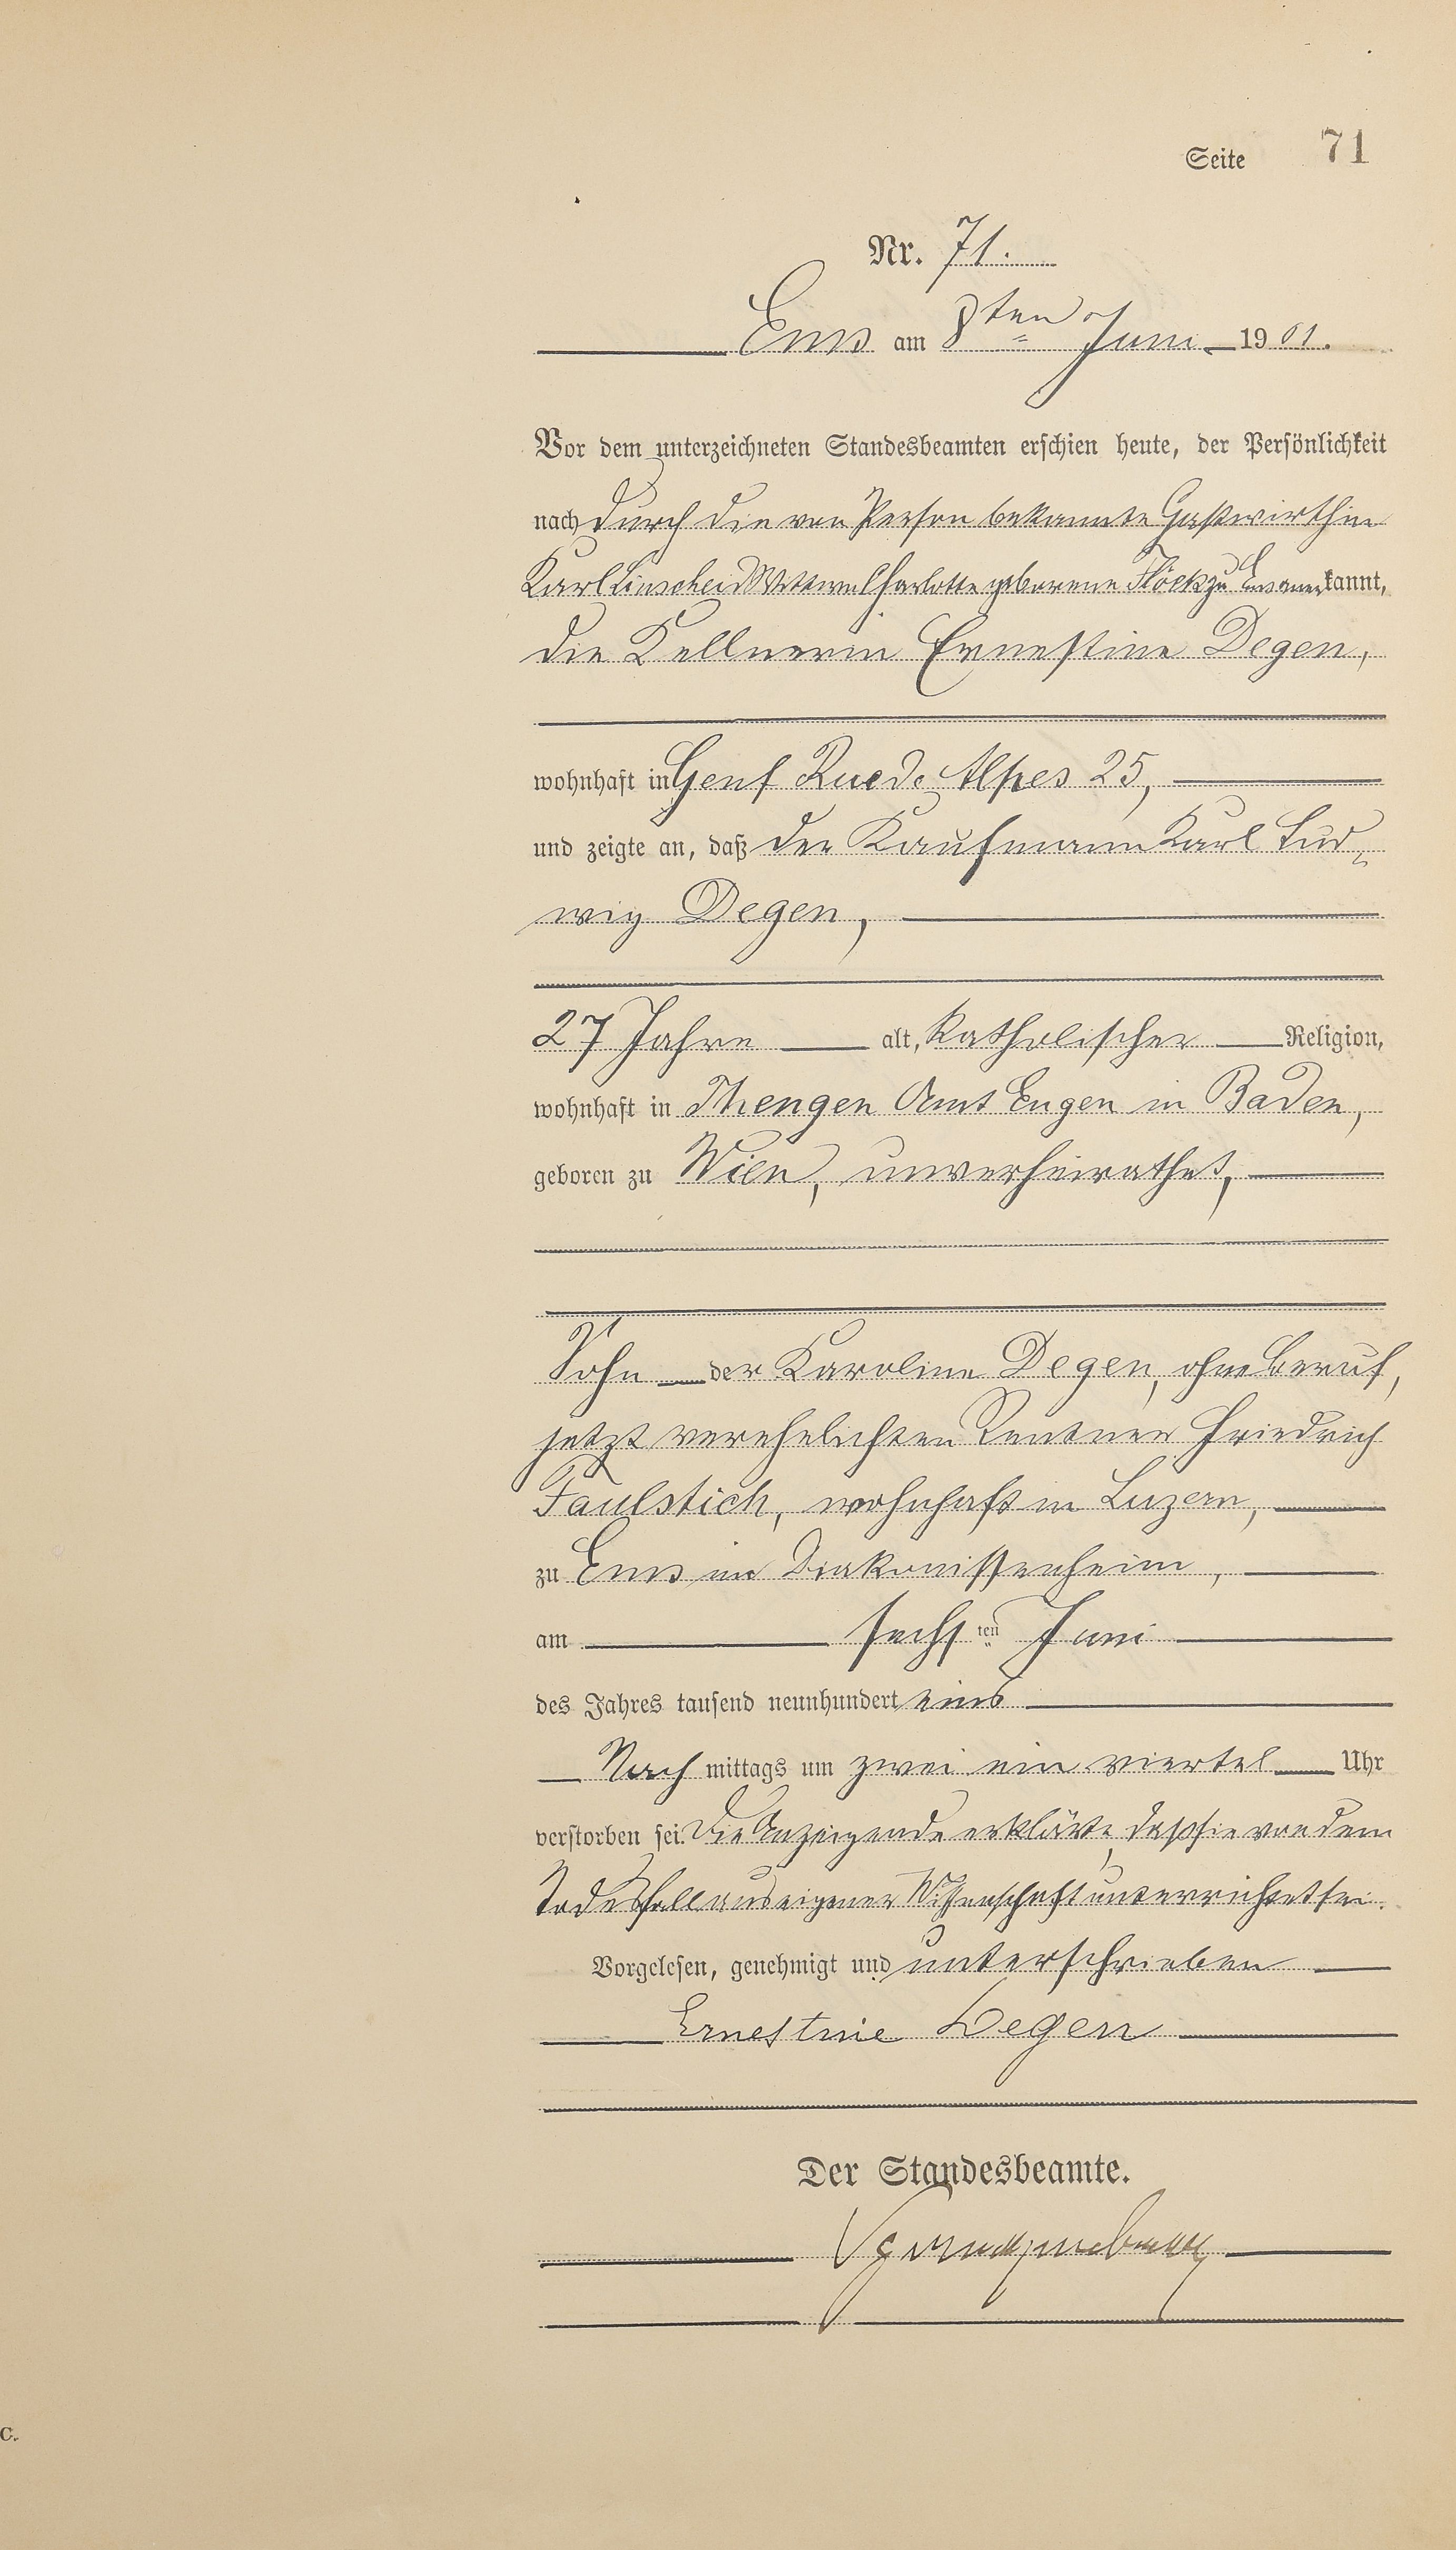 Seite 71
Nr. 71.
Ems am 8ten Juni 1901.
Vor dem unterzeichneten Standesbeamten erschien heute, der Persönlichkeit
nach durch die von Person bekannte Gastwirthin
Karl Linscheid Wittwe Charlotte geborene Flöck zu Ems anerkannt,
die Kellnerin Ernestine Degen,
wohnhaft in Genf Rue de Alpes 25,
und zeigte an, daß der Kaufmann Karl Lud-
wig Degen,
27 Jahre alt, katholischer Religion,
wohnhaft in Thengen Amt Engen in Baden,
geboren zu Wien, unverheirathet,
Sohn der Karoline Degen, ohne Beruf,
jetzt verehelichten Rentner Friedrich
Faulstich, wohnhaft in Luzern,
zu Ems im Diakonissenheim,
am sechsten Juni
des Jahres tausend neunhundert eins
Nachmittags um zwei ein viertel Uhr
verstorben sei. Die Anzeigende erklärte, daß sie von dem
Todesfall aus eigener Wissenschaft unterrichtet sei.
Vorgelesen, genehmigt und unterschrieben
Ernestine Degen
Der Standesbeamte.
C.